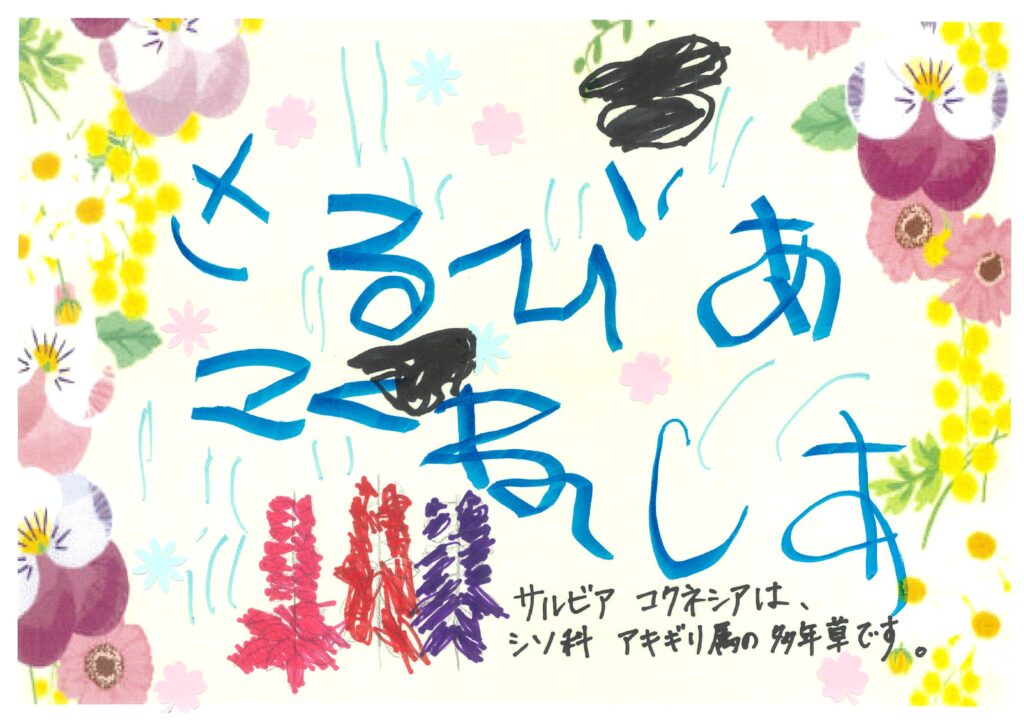 さるびあ
こくねしあ
サルビア コクネシアは、
シソ科 アキギリ属の多年草です。